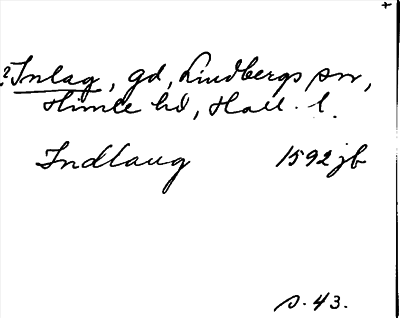 ?Inlag, gd, Lindbergs sn,
Himle hd, Hall. l.
Indlaug 1592 jb
s. 43.